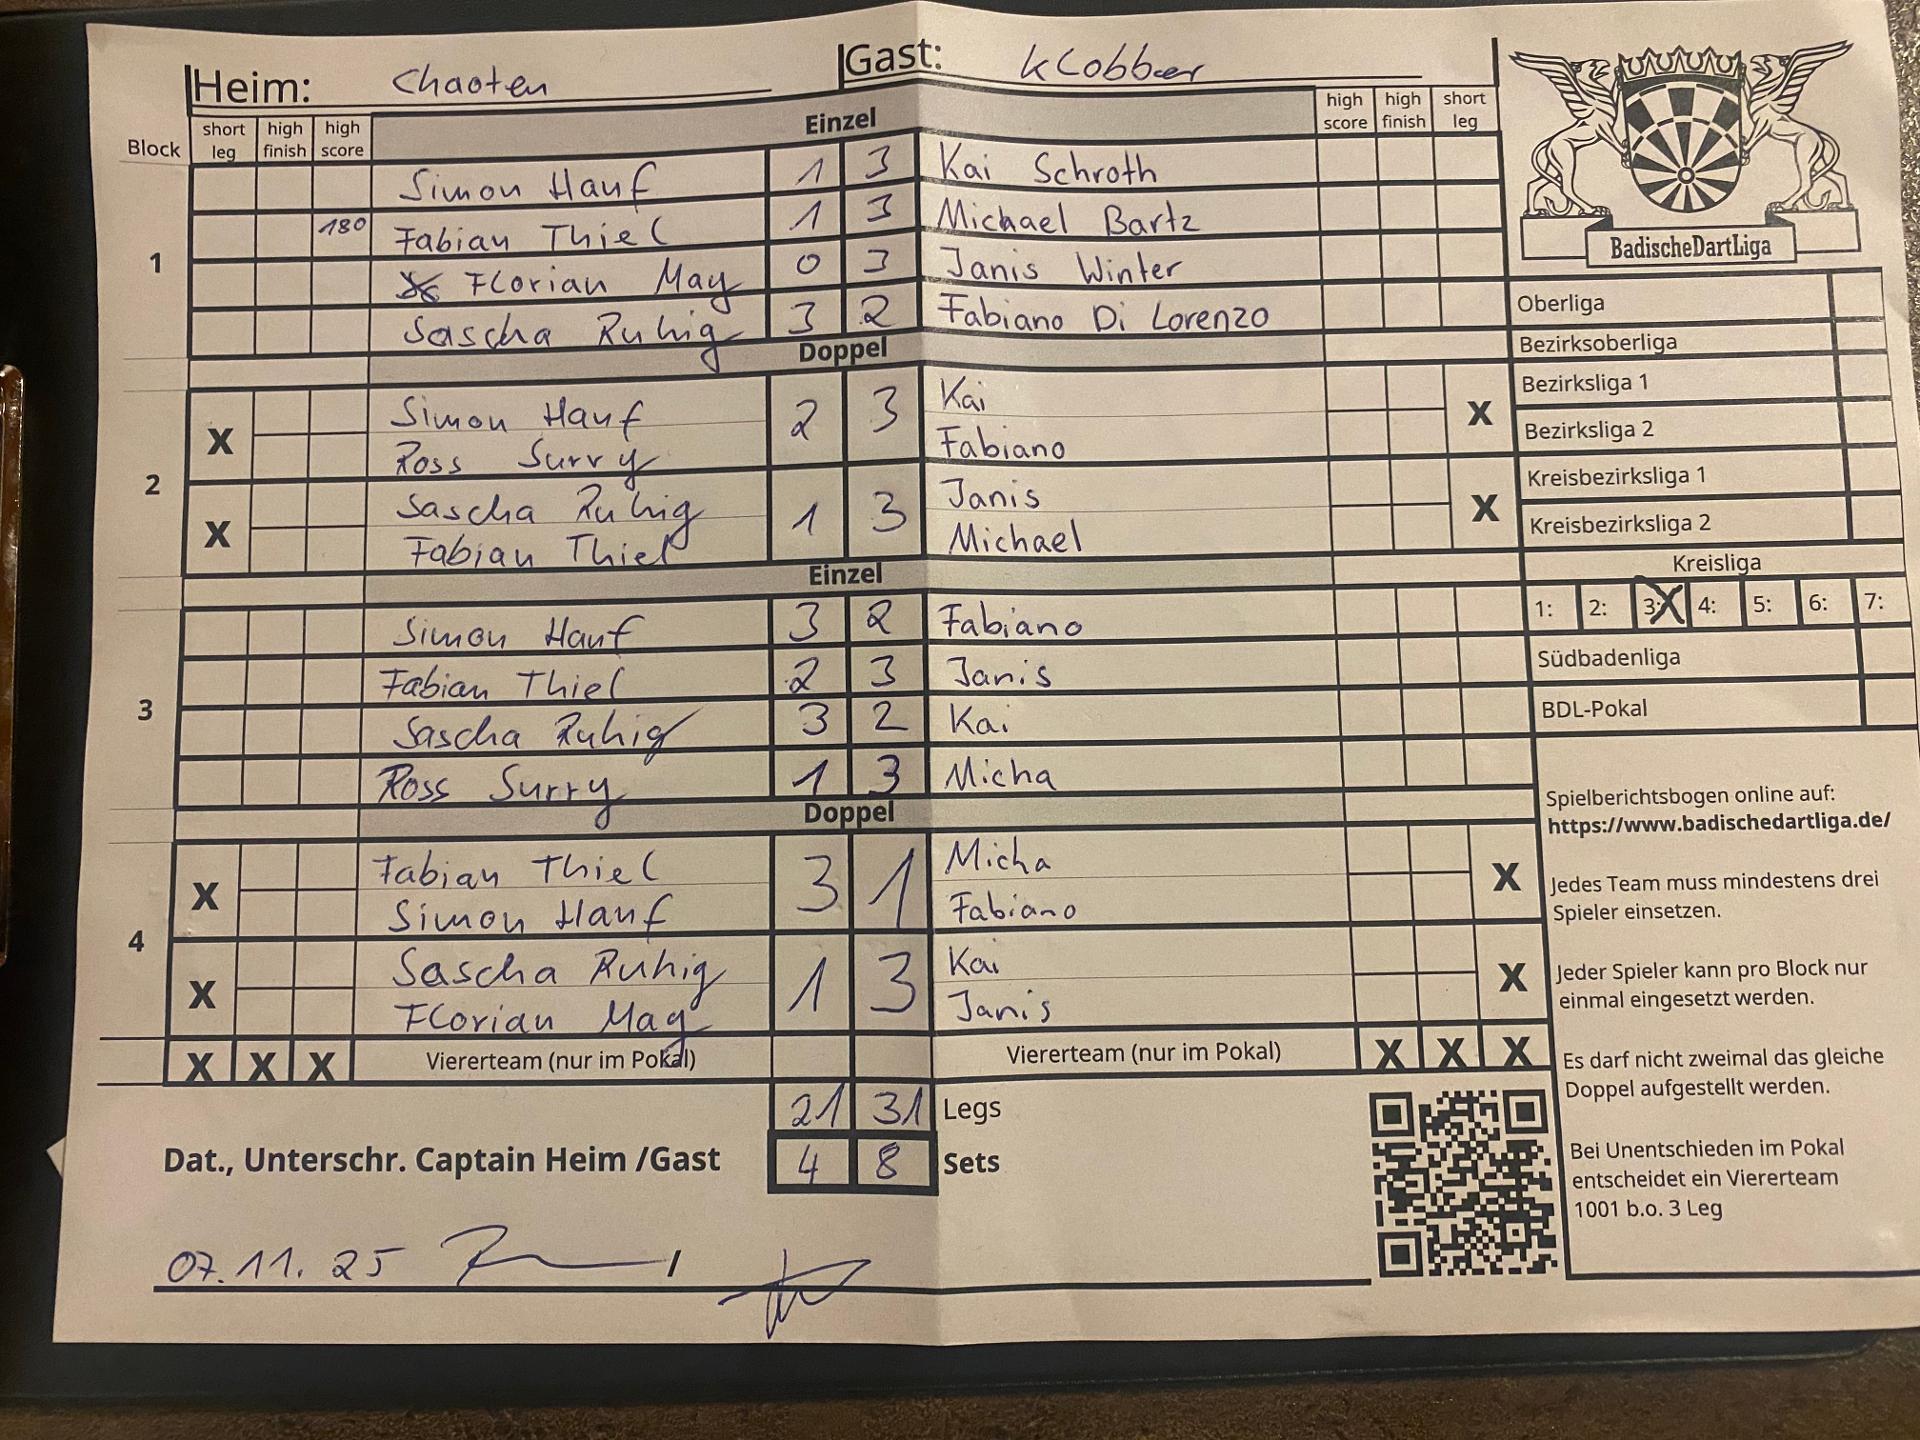 Heim: Chaoten Gast: Klobber
Block short leg high finish high score Einzel high score high finish short leg
1
Simon Hauf 1 3 Kai Schroth
180 Fabian Thiel 1 3 Michael Bartz
Florian May 0 3 Janis Winter
Sascha Ruhig 3 2 Fabiano Di Lorenzo
Doppel
2
X Simon Hauf 2 3 Kai X
Ross Surry Fabiano
X Sascha Ruhig 1 3 Janis X
Fabian Thiel Michael
Einzel
3
Simon Hauf 3 2 Fabiano
Fabian Thiel 2 3 Janis
Sascha Ruhig 3 2 Kai
Ross Surry 1 3 Micha
Doppel
4
X Fabian Thiel 3 1 Micha X
Simon Hauf Fabiano
X Sascha Ruhig 1 3 Kai X
Florian May Janis
X X X Viererteam (nur im Pokal) Viererteam (nur im Pokal) X X X
21 31 Legs
Dat., Unterschr. Captain Heim /Gast 4 8 Sets
07.11.25 /
BadischeDartLiga
Oberliga
Bezirksoberliga
Bezirksliga 1
Bezirksliga 2
Kreisbezirksliga 1
Kreisbezirksliga 2
Kreisliga
1: 2: 3: X 4: 5: 6: 7:
Südbadenliga
BDL-Pokal
Spielberichtsbogen online auf:
https://www.badischedartliga.de/
Jedes Team muss mindestens drei
Spieler einsetzen.
Jeder Spieler kann pro Block nur
einmal eingesetzt werden.
Es darf nicht zweimal das gleiche
Doppel aufgestellt werden.
Bei Unentschieden im Pokal
entscheidet ein Viererteam
1001 b.o. 3 Leg